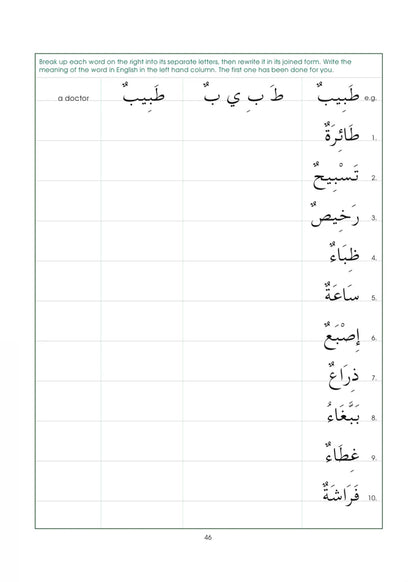 Break up each word on the right into its separate letters, then rewrite it in its joined form. Write the
meaning of the word in English in the left hand column. The first one has been done for you.
e.g. طَبِيبٌ طَ بِ ي بٌ طَبِيبٌ a doctor
1. طَائِرَةٌ
2. تَسْبِيحٌ
3. رَخِيصٌ
4. ظِبَاءٌ
5. سَاعَةٌ
6. إِصْبَعٌ
7. ذِرَاعٌ
8. بَبَّغَاءُ
9. غِطَاءٌ
10. فَرَاشَةٌ
46